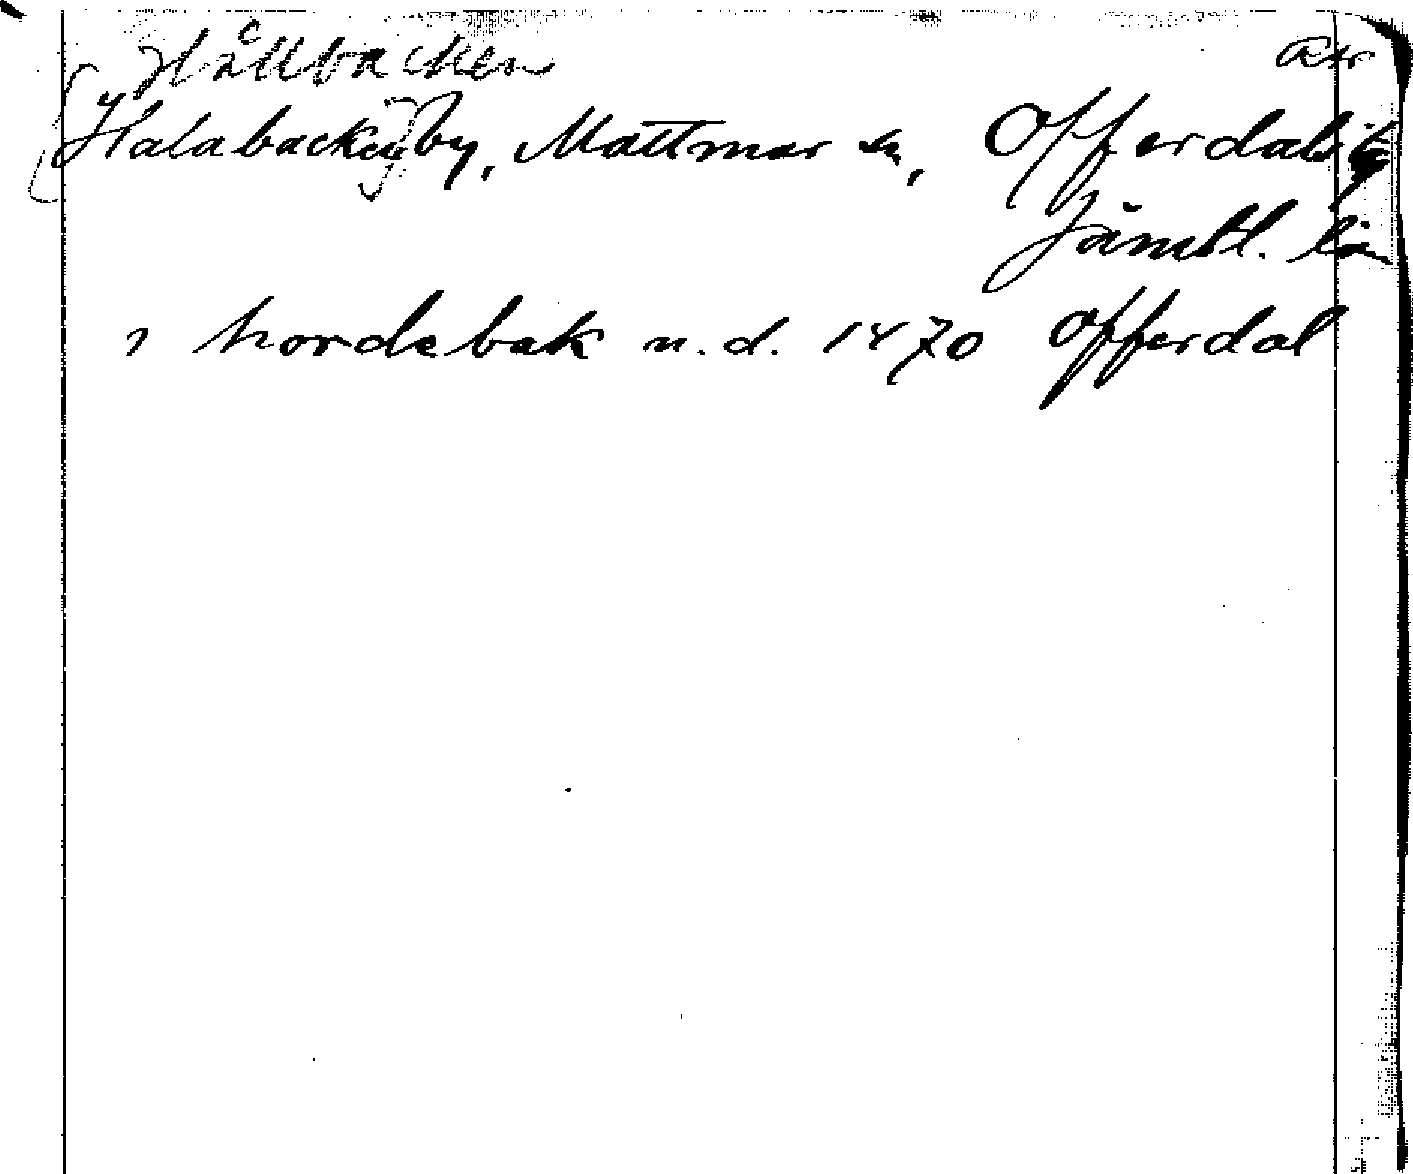 Hållbacken
Halabacka by, Mattmar sn, Offerdals tg
Jämtl. län
i nordebak n.d. 1470 Offerdal